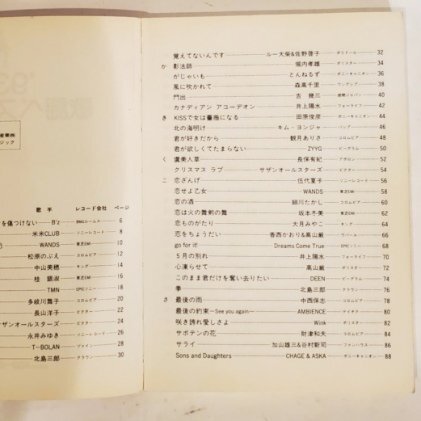 歌手 レコード会社 ページ
を傷つけない B'z BMGルームス 6
米米CLUB ソニーレコード 8
WANDS 東芝EMI 10
松原のぶえ 12
中山美穂 キング 14
桂銀淑 東芝EMI 16
TMN EPICソニー 18
多岐川舞子 コロムビア 20
長山洋子 ビクター 22
ザンオールスターズ ビクター 24
永井みゆき 26
T-BOLAN 28
北島三郎 クラウン 30
覚えてないんです ルー大柴&佐野啓子 ポリドール 32
か 影法師 堀内孝雄 ポリスター 34
がじゃいも とんねるず ポニーキャニオン 36
風に吹かれて 森高千里 ワーナー 38
門出 吉幾三 40
カナディアン アコーデオン 井上陽水 フォーライフ 42
き KISSで女は薔薇になる 田原俊彦 ポニーキャニオン 44
北の海明け キム・ヨンジャ 46
君が好きだから 観月ありさ コロムビア 48
君が欲しくてたまらない ZYYG 50
く 虞美人草 長保有紀 アポロン 52
クリスマス ラブ サザンオールスターズ ビクター 54
こ 恋ざんげ 伍代夏子 ソニーレコード 56
恋せよ乙女 WANDS 東芝EMI 58
恋の酒 細川たかし コロムビア 60
恋は火の舞剣の舞 坂本冬美 東芝EMI 62
恋ものがたり 大月みやこ キング 64
恋をちょうだい 香西かおり&高山厳 66
go for it! Dreams Come True EPICソニー 68
5月の別れ 井上陽水 フォーライフ 70
心凍らせて 高山厳 72
このまま君だけを奪い去りたい DEEN 74
拳 北島三郎 クラウン 76
さ 最後の雨 中西保志 78
最後の約束—See you again— AMBIENCE 80
咲き誇れ愛しさよ Wink ポリスター 82
サボテンの花 財津和夫 84
サライ 加山雄三&谷村新司 ファンハウス 86
Sons and Daughters CHAGE & ASKA ポニーキャニオン 88